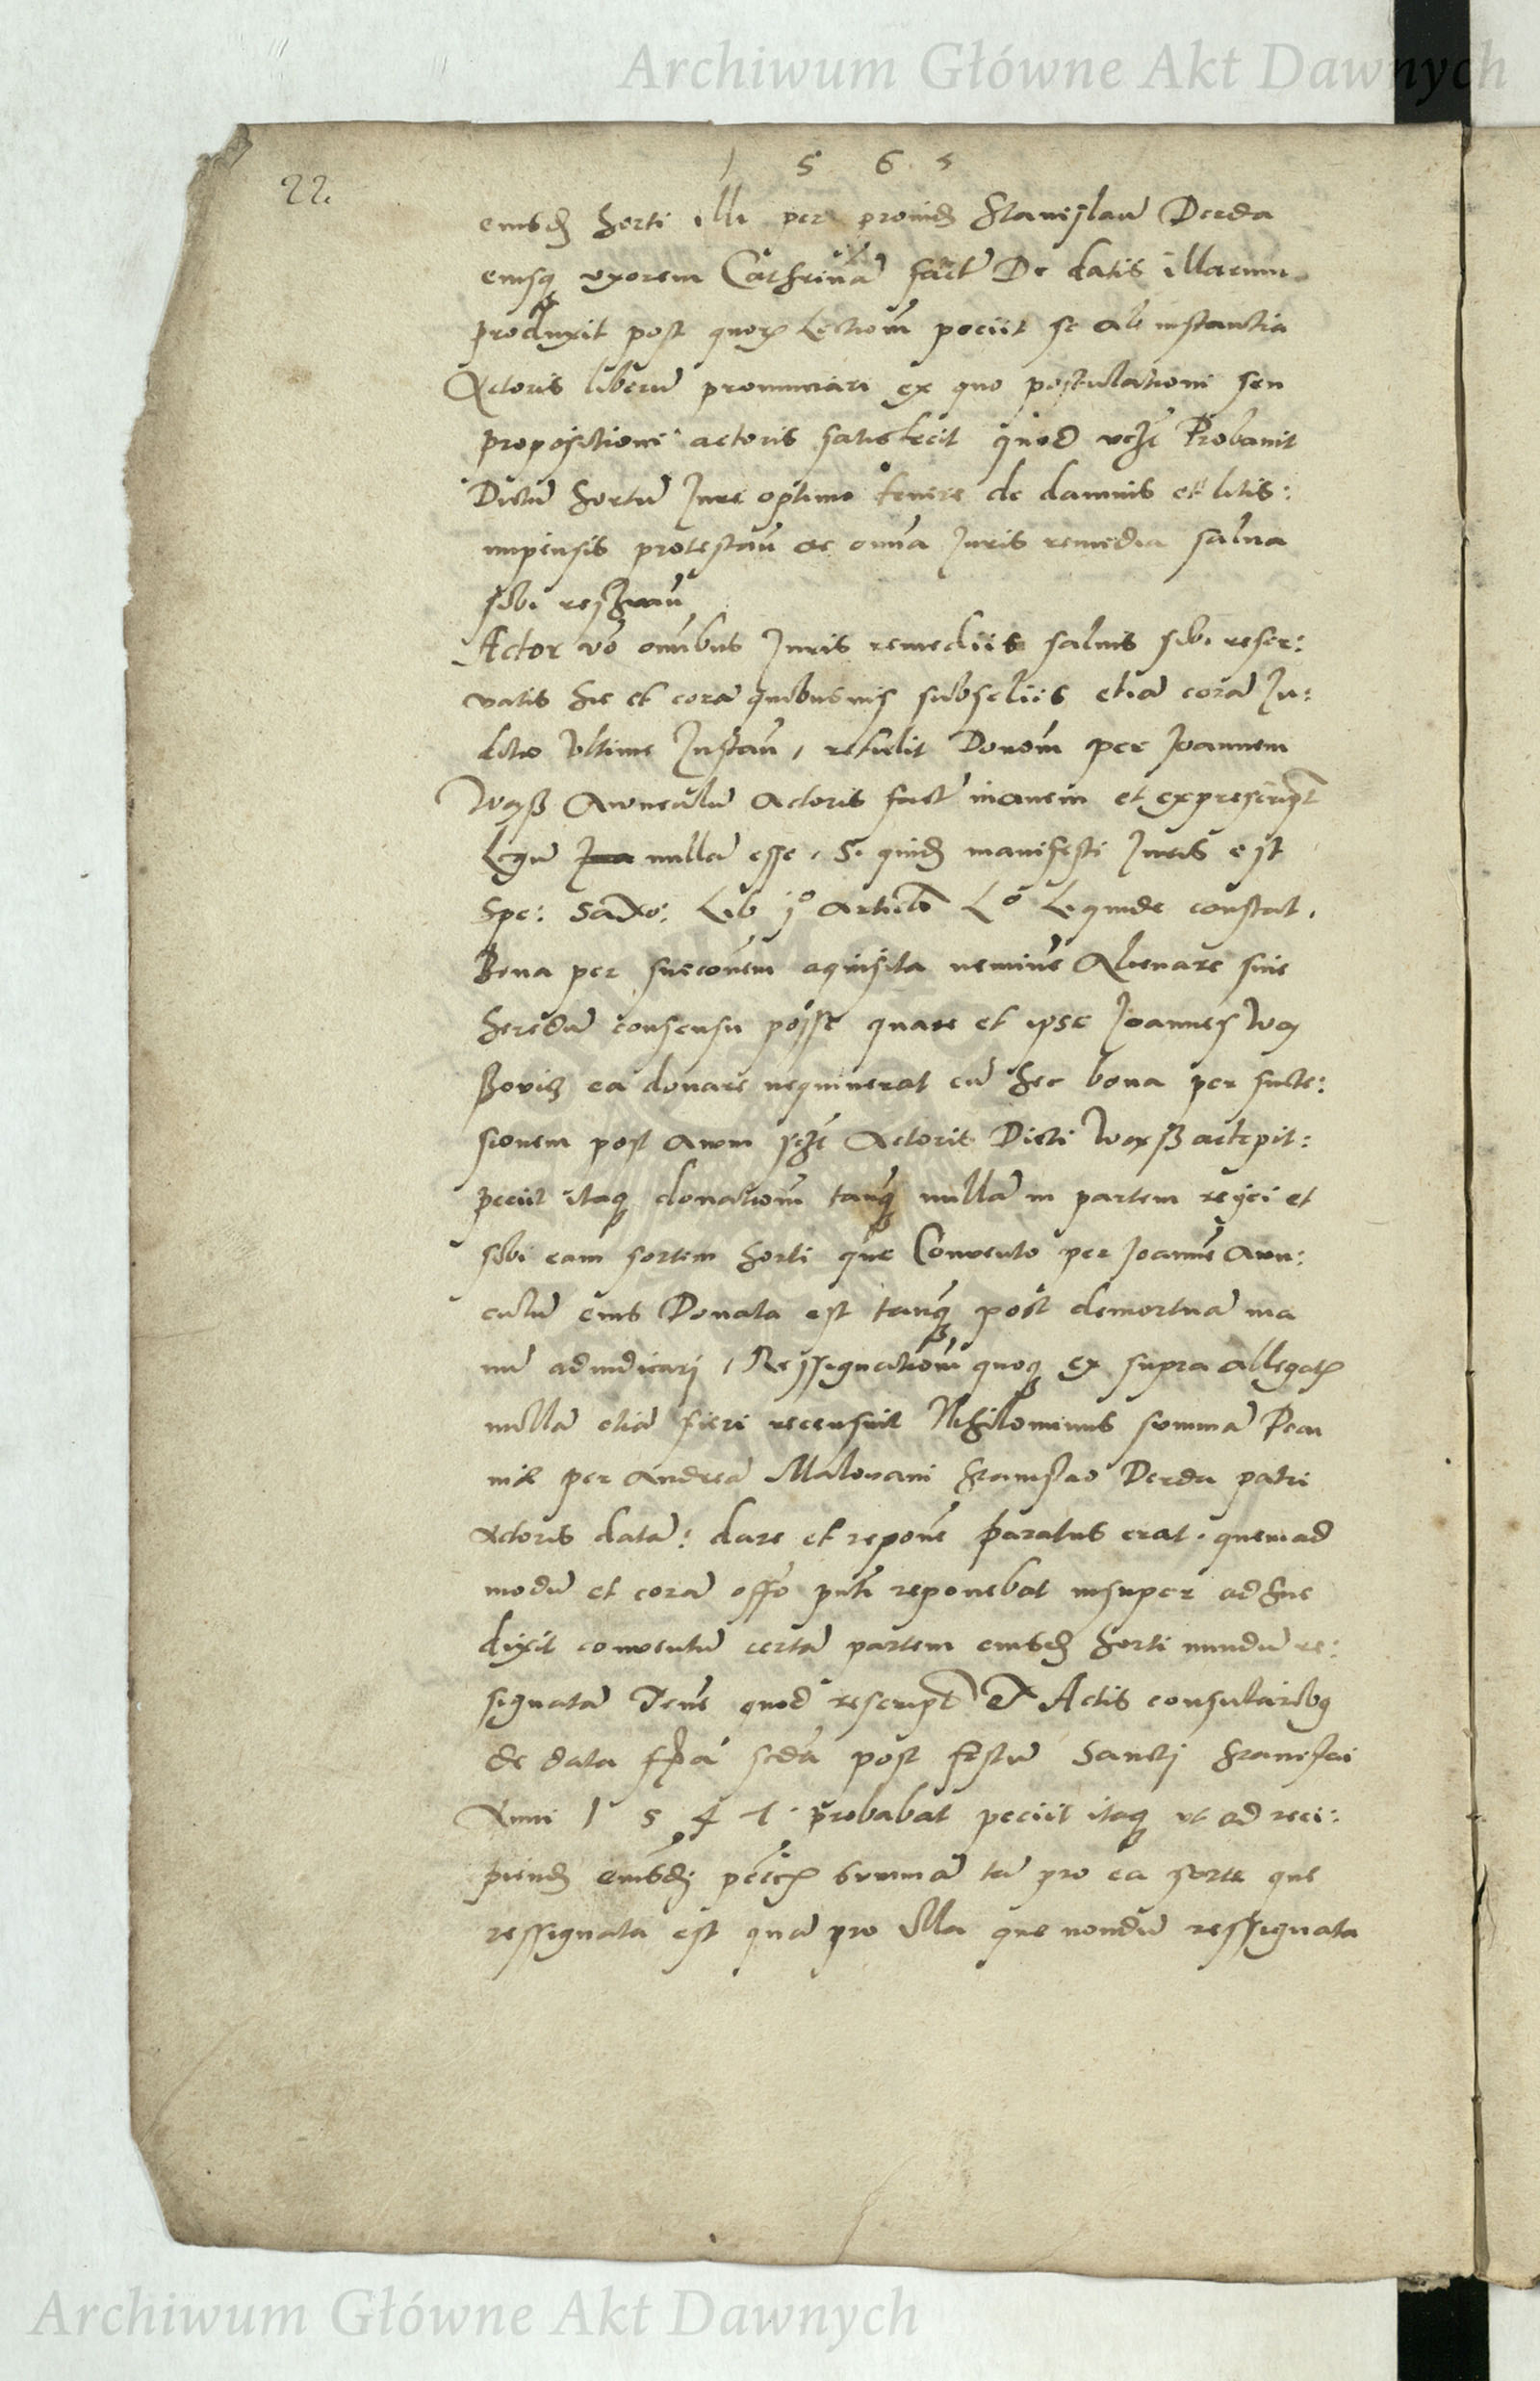 Archiwum Główne Akt Dawnych
1 5 6 5
22.
eiusd horti illi per provid Stanislau Derda
eiusq uxorem Catherina fact De datis illarum
produxit post quor lectiom peciit se ab instantia
Actoris liberu pronunciari ex quo postulationi seu
propositioni actoris satisfecit quod Probavit
Dictu hortu Jure optimo tenere de damnis et litis:
impensis protestau ac omnia Juris remedia salva
sibi reservau
Actor vo omibus Juris remediis salvis sibi reser:
vatis hic et cora quibusvis subseliis etia cora Ju:
dicio Ultime Instan, retulit Donom per Joannem
Woyß Avunculu Actoris fact inanem et ex prescript
Legu nulla esse, Si quid manifesti Juris est
Spe: Saxo: Lib jo Articlo Lo Liquide constat,
Bona per succonem aquisita nemine Alienare sine
heredu consensu posse quare et ipse Joannes Woy
ßovia ea donare nequiverat cu hec bona per succe:
sionem post Avum Actoris Dicti Woyß accepit:
peciit itaq donationm tanq nulla in partem reijci et
sibi eam sortem horti que Convento per Joanne Avun:
culu eius Donata est tanq post demortua ma
nu adiudicari, Ressignationm quoq ex supra allegatis
nulla etia fieri recensuit Nihilominus summa Pecu
nie per Andrea Malovani Stanislao Derda patri
Actoris data: dare et repone paratus erat. quemad
modu et cora offo pnti reponebat insuper adhuc
dixit conventu certa partem eiusd horti nundu re:
signata Tene quod rescript Ex Actis consularibq
de data fria scda post festu Sancti Francisci
Anni 1 5 4 1. probabat peciit itaq ut ad reci:
piend eiusd summa ta pro ea sorte que
ressignata est qua pro illa que nondu ressignata
Archiwum Główne Akt Dawnych